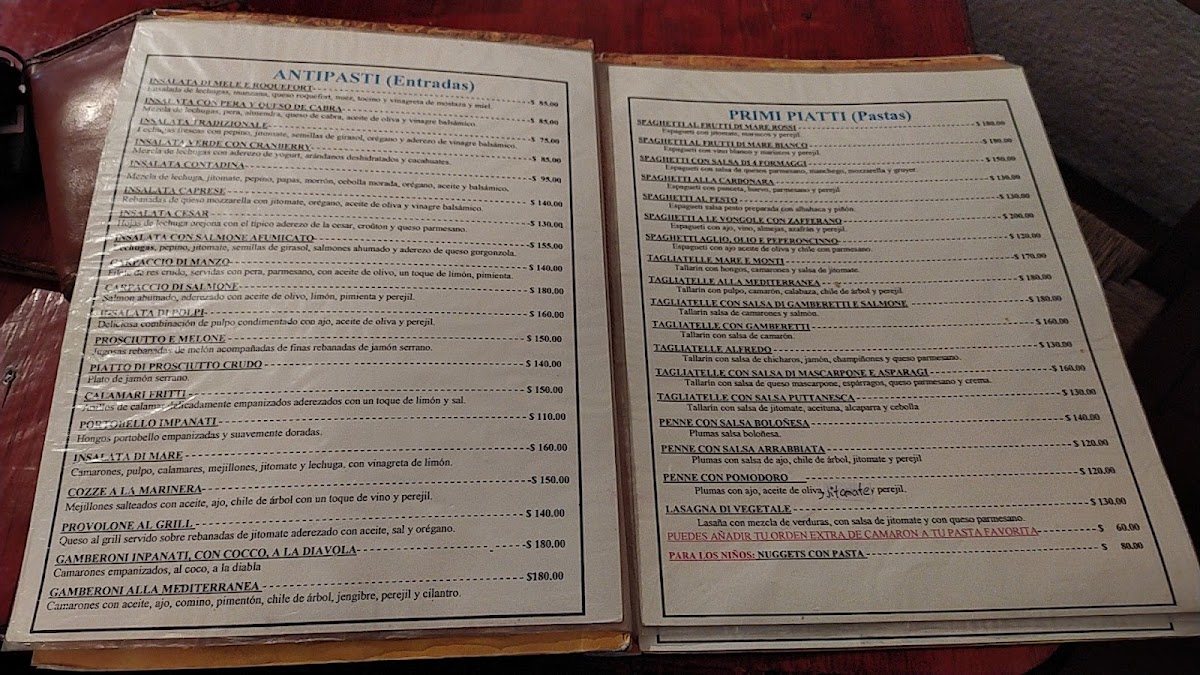 ANTIPASTI (Entradas)
INSALATA DI MELE E ROQUEFORT $ 85.00
Ensalada de lechugas, manzana, queso roquefort, nuez, tocino y vinagreta de mostaza y miel.
INSALATA CON PERA Y QUESO DE CABRA $ 85.00
Mezcla de lechugas, pera, almendra, queso de cabra, aceite de oliva y vinagre balsámico.
INSALATA TRADIZIONALE $ 75.00
Lechugas frescas con pepino, jitomate, semillas de girasol, orégano y aderezo de vinagre balsámico.
INSALATA VERDE CON CRANBERRY $ 85.00
Mezcla de lechugas con aderezo de yogurt, arándanos deshidratados y cacahuates.
INSALATA CONTADINA $ 95.00
Mezcla de lechuga, jitomate, pepino, papas, morrón, cebolla morada, orégano, aceite y balsámico.
INSALATA CAPRESE $ 140.00
Rebanadas de queso mozzarella con jitomate, orégano, aceite de oliva y vinagre balsámico.
INSALATA CESAR $ 130.00
Hojas de lechuga orejona con el típico aderezo de la cesar, croûton y queso parmesano.
INSALATA CON SALMONE AFUMICATO $ 155.00
Lechugas, pepino, jitomate, semillas de girasol, salmones ahumado y aderezo de queso gorgonzola.
CARPACCIO DI MANZO $ 140.00
de res crudo, servidas con pera, parmesano, con aceite de olivo, un toque de limón, pimienta.
CARPACCIO DI SALMONE $ 180.00
Salmon ahumado, aderezado con aceite de olivo, limón, pimienta y perejil.
INSALATA DI POLPI $ 160.00
Deliciosa combinación de pulpo condimentado con ajo, aceite de oliva y perejil.
PROSCIUTTO E MELONE $ 150.00
Jugosas rebanadas de melón acompañadas de finas rebanadas de jamón serrano.
PIATTO DI PROSCIUTTO CRUDO $ 140.00
Plato de jamón serrano.
CALAMARI FRITTI $ 150.00
Anillos de calamar delicadamente empanizados aderezados con un toque de limón y sal.
PORTOBELLO IMPANATI $ 110.00
Hongos portobello empanizadas y suavemente doradas.
INSALATA DI MARE $ 160.00
Camarones, pulpo, calamares, mejillones, jitomate y lechuga, con vinagreta de limón.
COZZE A LA MARINERA $ 150.00
Mejillones salteados con aceite, ajo, chile de árbol con un toque de vino y perejil.
PROVOLONE AL GRILL $ 140.00
Queso al grill servido sobre rebanadas de jitomate aderezado con aceite, sal y orégano.
GAMBERONI INPANATI, CON COCCO, A LA DIAVOLA $ 180.00
Camarones empanizados, al coco, a la diabla
GAMBERONI ALLA MEDITERRANEA $180.00
Camarones con aceite, ajo, comino, pimentón, chile de árbol, jengibre, perejil y cilantro.
PRIMI PIATTI (Pastas)
SPAGHETTI AL FRUTTI DI MARE ROSSI $ 180.00
Espagueti con jitomate, mariscos y perejil.
SPAGHETTI AL FRUTTI DI MARE BIANCO $ 180.00
Espagueti con vino blanco y mariscos y perejil.
SPAGHETTI CON SALSA DI 4 FORMAGGI $ 150.00
Espagueti con salsa de quesos parmesano, manchego, mozzarella y gruyer.
SPAGHETTI ALLA CARBONARA $ 130.00
Espagueti con panceta, huevo, parmesano y perejil
SPAGHETTI AL PESTO $ 130.00
Espagueti salsa pesto preparada con albahaca y piñón.
SPAGHETTI A LE VONGOLE CON ZAFFERANO $ 200.00
Espagueti con ajo, vino, almejas, azafrán y perejil.
SPAGHETTI AGLIO, OLIO E PEPERONCINNO $ 120.00
Espagueti con ajo aceite de oliva y chile con parmesano.
TAGLIATELLE MARE E MONTI $ 170.00
Tallarín con hongos, camarones y salsa de jitomate.
TAGLIATELLE ALLA MEDITERRANEA $ 180.00
Tallarín con pulpo, camarón, calabaza, chile de árbol y perejil.
TAGLIATELLE CON SALSA DI GAMBERETTI E SALMONE $ 180.00
Tallarín salsa de camarones y salmón.
TAGLIATELLE CON GAMBERETTI $ 160.00
Tallarín con salsa de camarón.
TAGLIATELLE ALFREDO $ 130.00
Tallarín con salsa de chicharos, jamón, champiñones y queso parmesano.
TAGLIATELLE CON SALSA DI MASCARPONE E ASPARAGI $ 160.00
Tallarín con salsa de queso mascarpone, espárragos, queso parmesano y crema.
TAGLIATELLE CON SALSA PUTTANESCA $ 130.00
Tallarín con salsa de jitomate, aceituna, alcaparra y cebolla
PENNE CON SALSA BOLOÑESA $ 140.00
Plumas salsa boloñesa.
PENNE CON SALSA ARRABBIATA $ 120.00
Plumas con salsa de ajo, chile de árbol, jitomate y perejil
PENNE CON POMODORO $ 120.00
Plumas con ajo, aceite de oliva jitomate y perejil.
LASAGNA DI VEGETALE $ 130.00
Lasaña con mezcla de verduras, con salsa de jitomate y con queso parmesano.
PUEDES AÑADIR TU ORDEN EXTRA DE CAMARON A TÚ PASTA FAVORITA $ 60.00
PARA LOS NIÑOS: NUGGETS CON PASTA $ 80.00